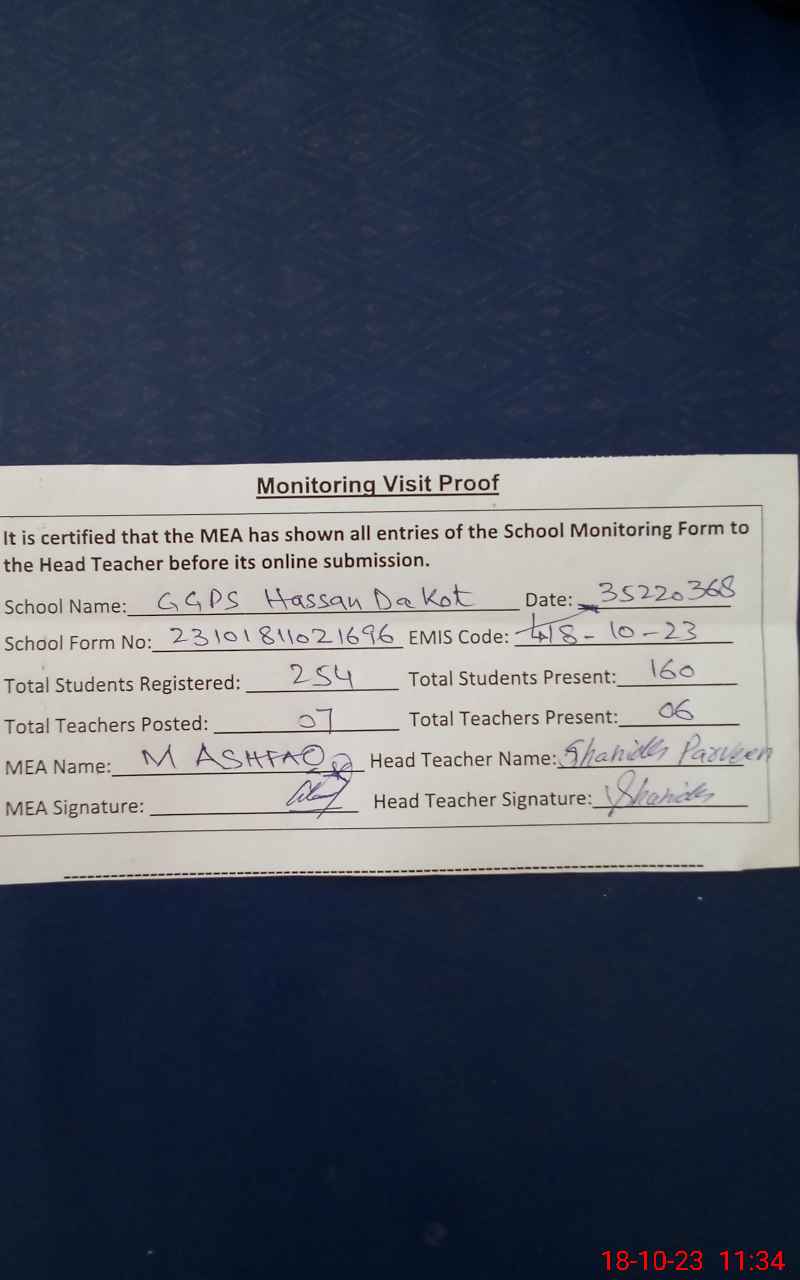 Monitoring Visit Proof
It is certified that the MEA has shown all entries of the School Monitoring Form to
the Head Teacher before its online submission.
School Name: GGPS Hassan Da Kot Date: 35220368
School Form No: 23101811021696 EMIS Code: 18-10-23
Total Students Registered: 254 Total Students Present: 160
Total Teachers Posted: 07 Total Teachers Present: 06
MEA Name: M ASHFAQ Head Teacher Name: Parveen
MEA Signature: Head Teacher Signature:
18-10-23 11:34